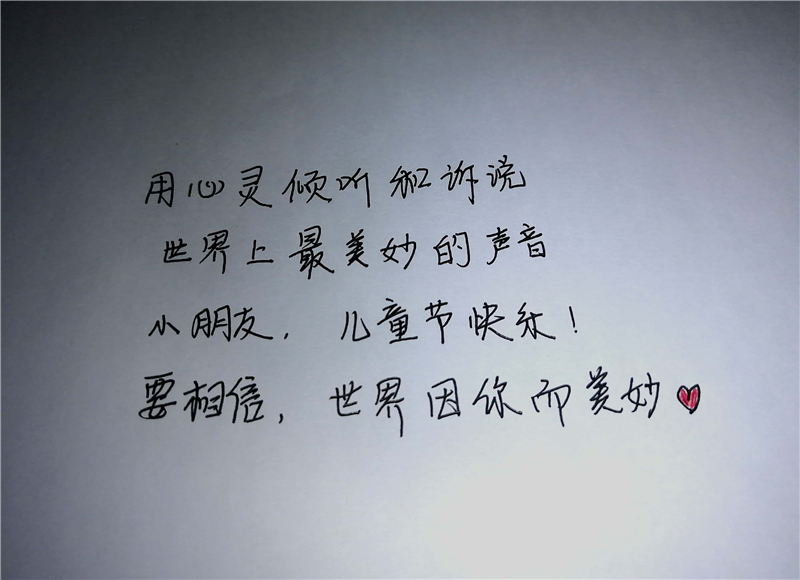 用心灵倾听和诉说
世界上最美妙的声音
小朋友，儿童节快乐！
要相信，世界因你而美妙